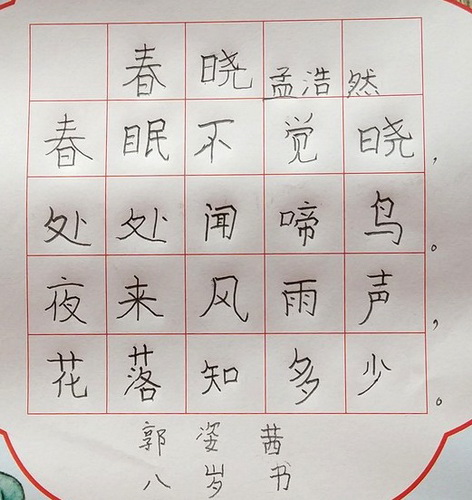 春晓 孟浩然
春眠不觉晓，
处处闻啼鸟。
夜来风雨声，
花落知多少。
郭姿茜
八岁书